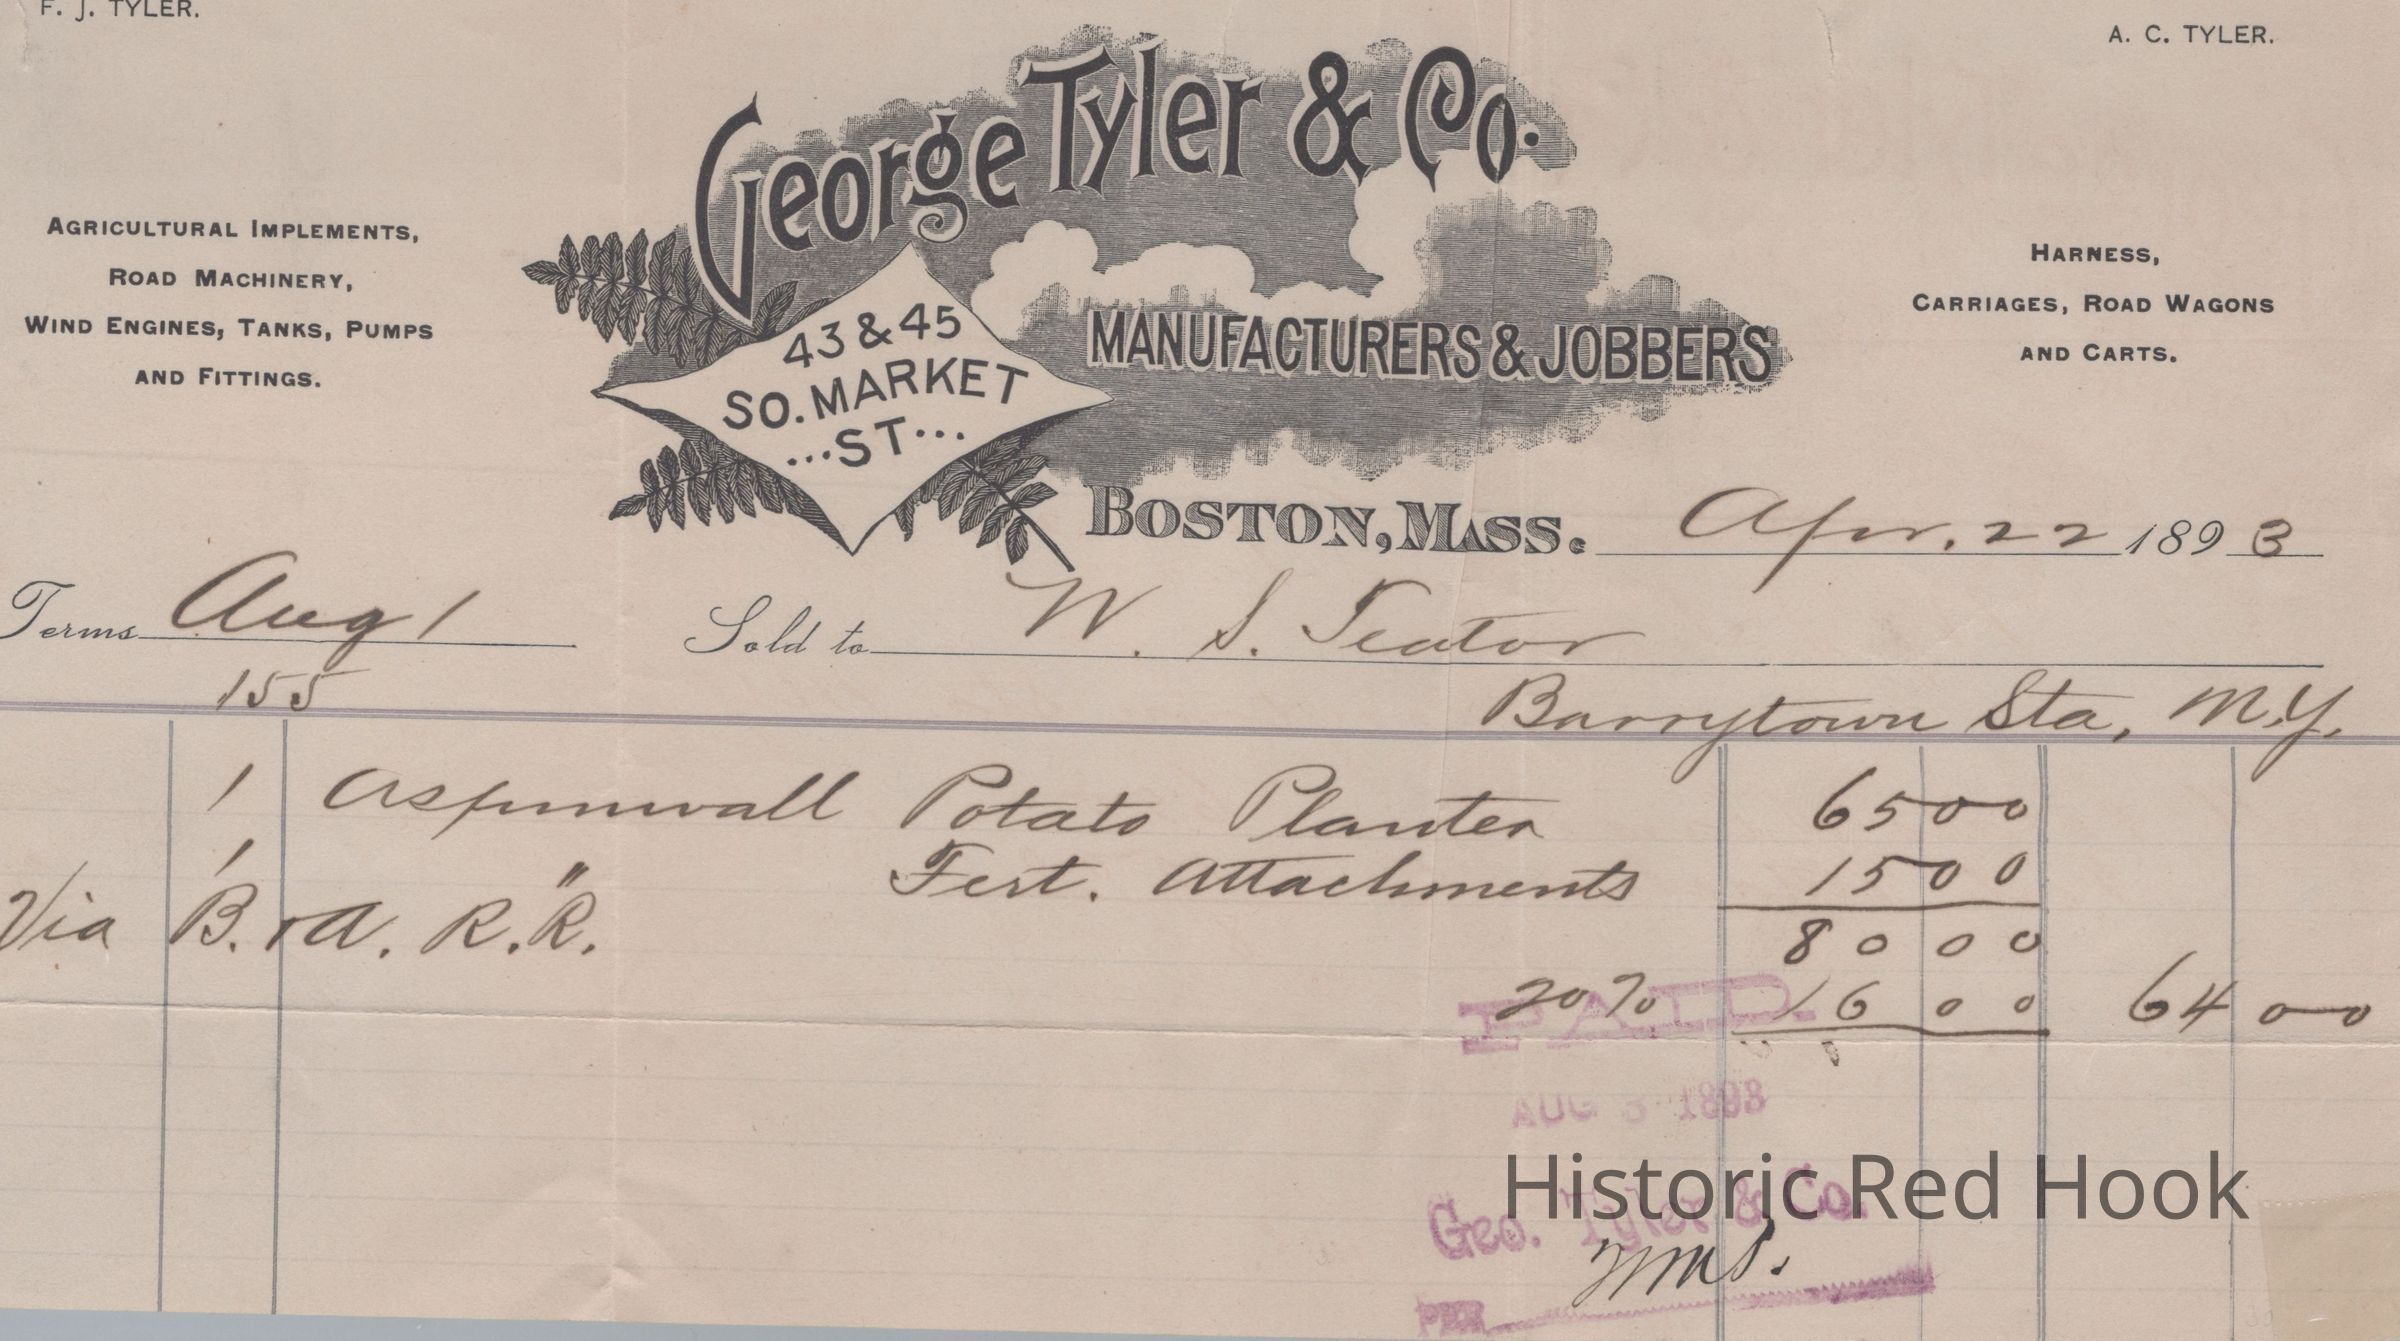 F. J. TYLER.
A. C. TYLER.
George Tyler & Co.
MANUFACTURERS & JOBBERS
43 & 45
SO. MARKET
...ST...
AGRICULTURAL IMPLEMENTS,
ROAD MACHINERY,
WIND ENGINES, TANKS, PUMPS
AND FITTINGS.
HARNESS,
CARRIAGES, ROAD WAGONS
AND CARTS.
BOSTON, MASS. Apr. 22 1893
Terms Aug 1 Sold to W. S. Teator
155 Barrytown Sta, N.Y.
1 Aspinwall Potato Planter 65 00
1 " Fert. Attachments 15 00
Via B. & A. R. R. 80 00
20% 16 00 64 00
PAID
AUG 3 1893
Historic Red Hook
Geo. Tyler & Co.
PER